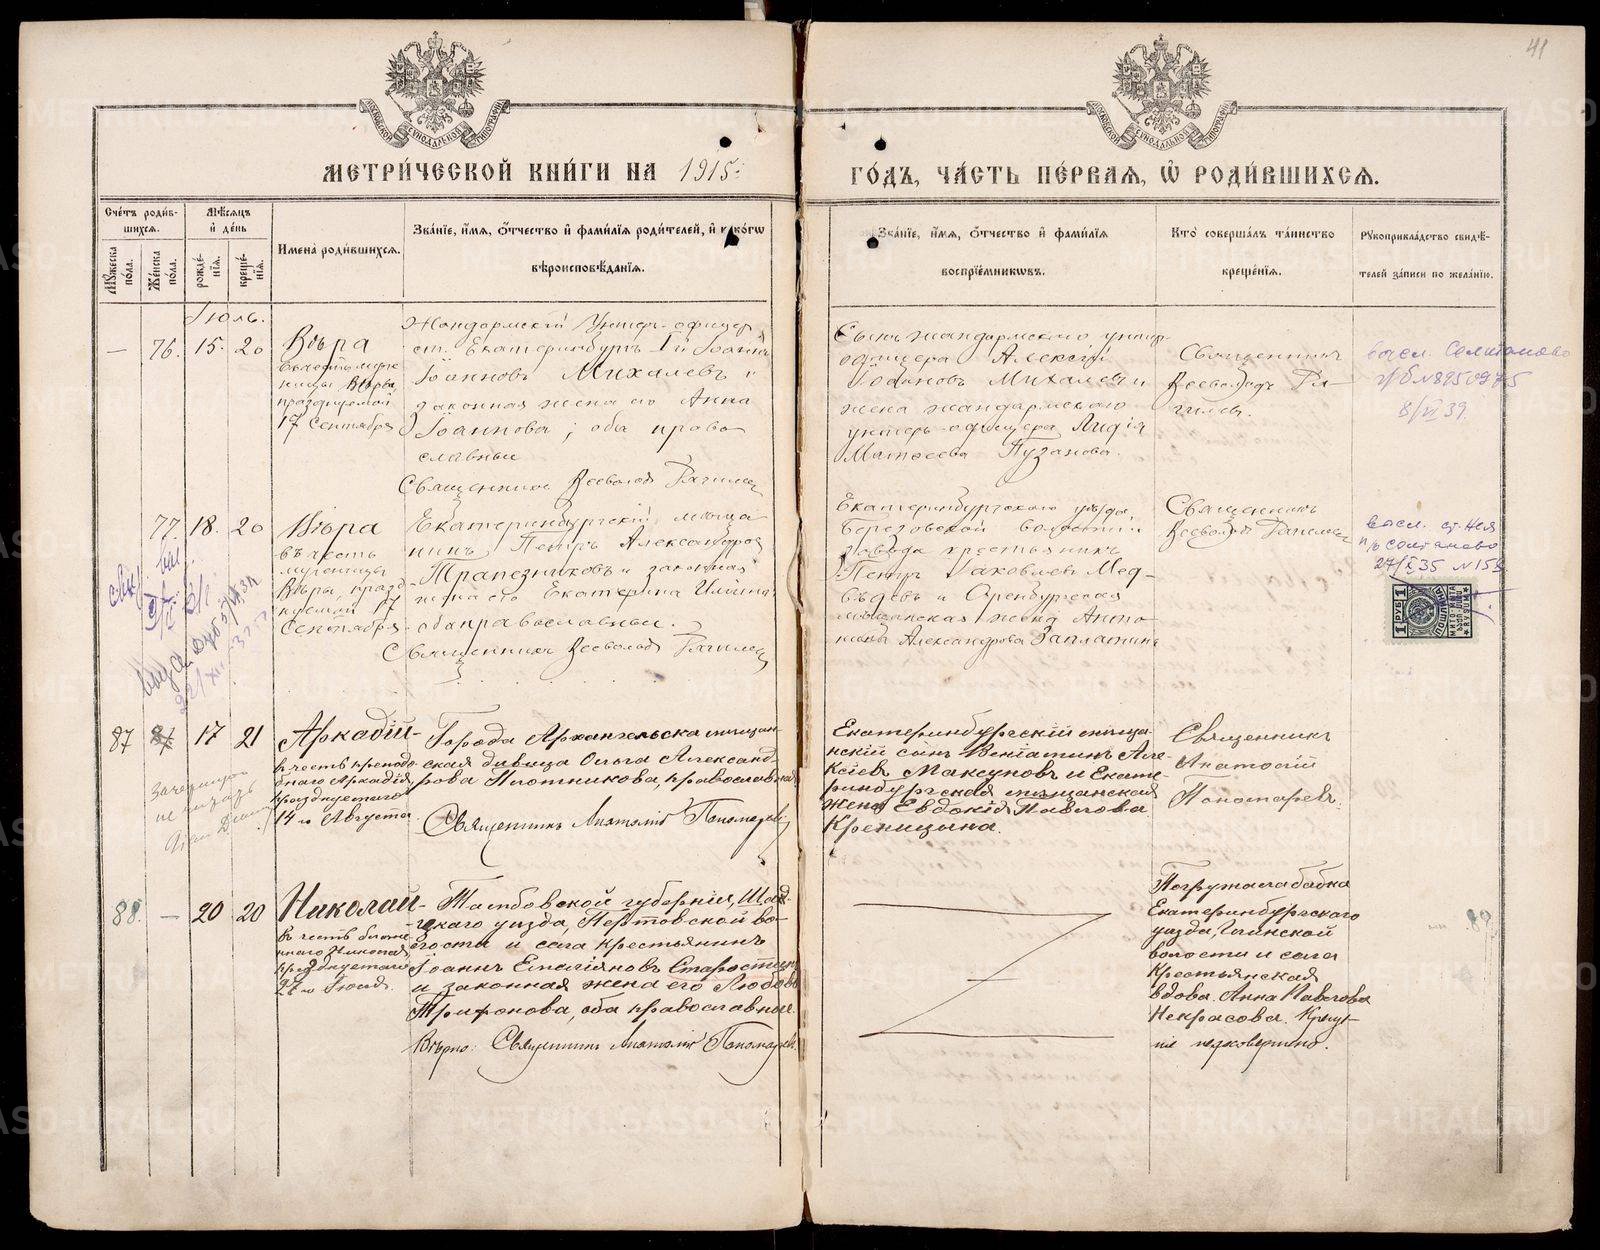 41
МОСКОВСКОЙ СѴНОДАЛЬНОЙ ТИПОГРАФІИ
МОСКОВСКОЙ СѴНОДАЛЬНОЙ ТИПОГРАФІИ
МЕТРИ́ЧЕСКОЙ КНИ́ГИ НА 1915:
ГО́ДЪ, ЧА́СТЬ ПЕ́РВАѦ, Ѡ҆ РОДИ́ВШИХСѦ.
Сче́тъ роди́в-
шихся.
Мѣ́сяцъ
и҆ де́нь
Мꙋ́жеска по́ла.
Же́нска по́ла.
рожде́-
нїя.
креще́-
нїя.
Имена̀ роди́вшихся.
Зва́нїе, и҆́мя, ѻ҆́тчество и҆ фами́лїя роди́телей, и҆ како́гѡ
вѣроисповѣ́данїя.
Зва́нїе, и҆́мя, ѻ҆́тчество и҆ фами́лїя
воспрїе́мникѡвъ.
Кто̀ соверша́лъ та́инство
креще́нїя.
Рꙋкоприкла́дство свидѣ́-
телей за́писи по жела́нїю.
Іюль.
— 76. 15. 20
Вѣра
въ честь муче
ницы Вѣры,
празднуемой
17 Сентября
Жандармскій Унтеръ-офицер
ст. Екатеринбургъ I й Іоаннъ
Іоанновъ Михалевъ и
законная жена его Анна
Іоаннова; оба право
славные
Священникъ Всеволодъ
Сынъ жандармскаго унтер-
офицера Алексѣй
Іоанновъ Михалевъ и
жена жандармскаго
унтеръ-офицера Лидія
Матѳеева Пузанова.
Священникъ
Всеволодъ
8/VI 39
77. 18. 20
Вѣра
въ честь
мученицы
Вѣры, празд
нуемой 17
Сентября
Екатеринбургскій мѣща
нинъ Петръ Александров
Трапезниковъ и законная
жена его Екатерина Ильина
оба православные.
Священникъ Всеволодъ
Екатеринбургскаго уѣзда
Березовской волости
завода крестьянинъ
Петръ Іаковлевъ Мед-
вѣдевъ и Оренбургская
мѣщанская жена Анто-
нина Александрова Заплатина
Священникъ
Всеволодъ
27/IX 35 N 153
1 РУБ
ПОШЛИНА
87 17 21
Аркадій-
въ честь преподо
бнаго Аркадія,
празднуемаго
14 го Августа
Зачеркнуто
Города Архангельска мѣщан-
ская дѣвица Ольга Александ-
рова Плотникова, православная
Священникъ Анатолій Пономаревъ
Екатеринбургскій мѣща-
нскій сынъ Веніаминъ Але-
ксѣевъ Максуновъ и Екате-
ринбургская мѣщанская
жена Евдокія Павлова
Креницына.
Священникъ
Анатолій
Пономаревъ.
88. — 20 20
Николай-
въ честь блаже-
ннаго Николая,
празднуемаго
27 го Іюля.
Тамбовской губерніи, Шад-
скаго уѣзда, во-
лости и села крестьянинъ
Іоаннъ Емеліяновъ Старостинъ
и законная жена его Любовь
Трифонова, оба православные.
Вѣрно: Священникъ Анатолій Пономаревъ
Погружала бабка
Екатеринбургскаго
уѣзда,
волости и села
крестьянская
вдова Анна Павлова
Некрасова.